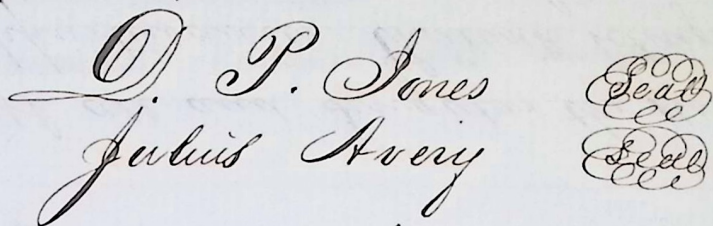 D. P. Jones Seal
Julius Avery Seal